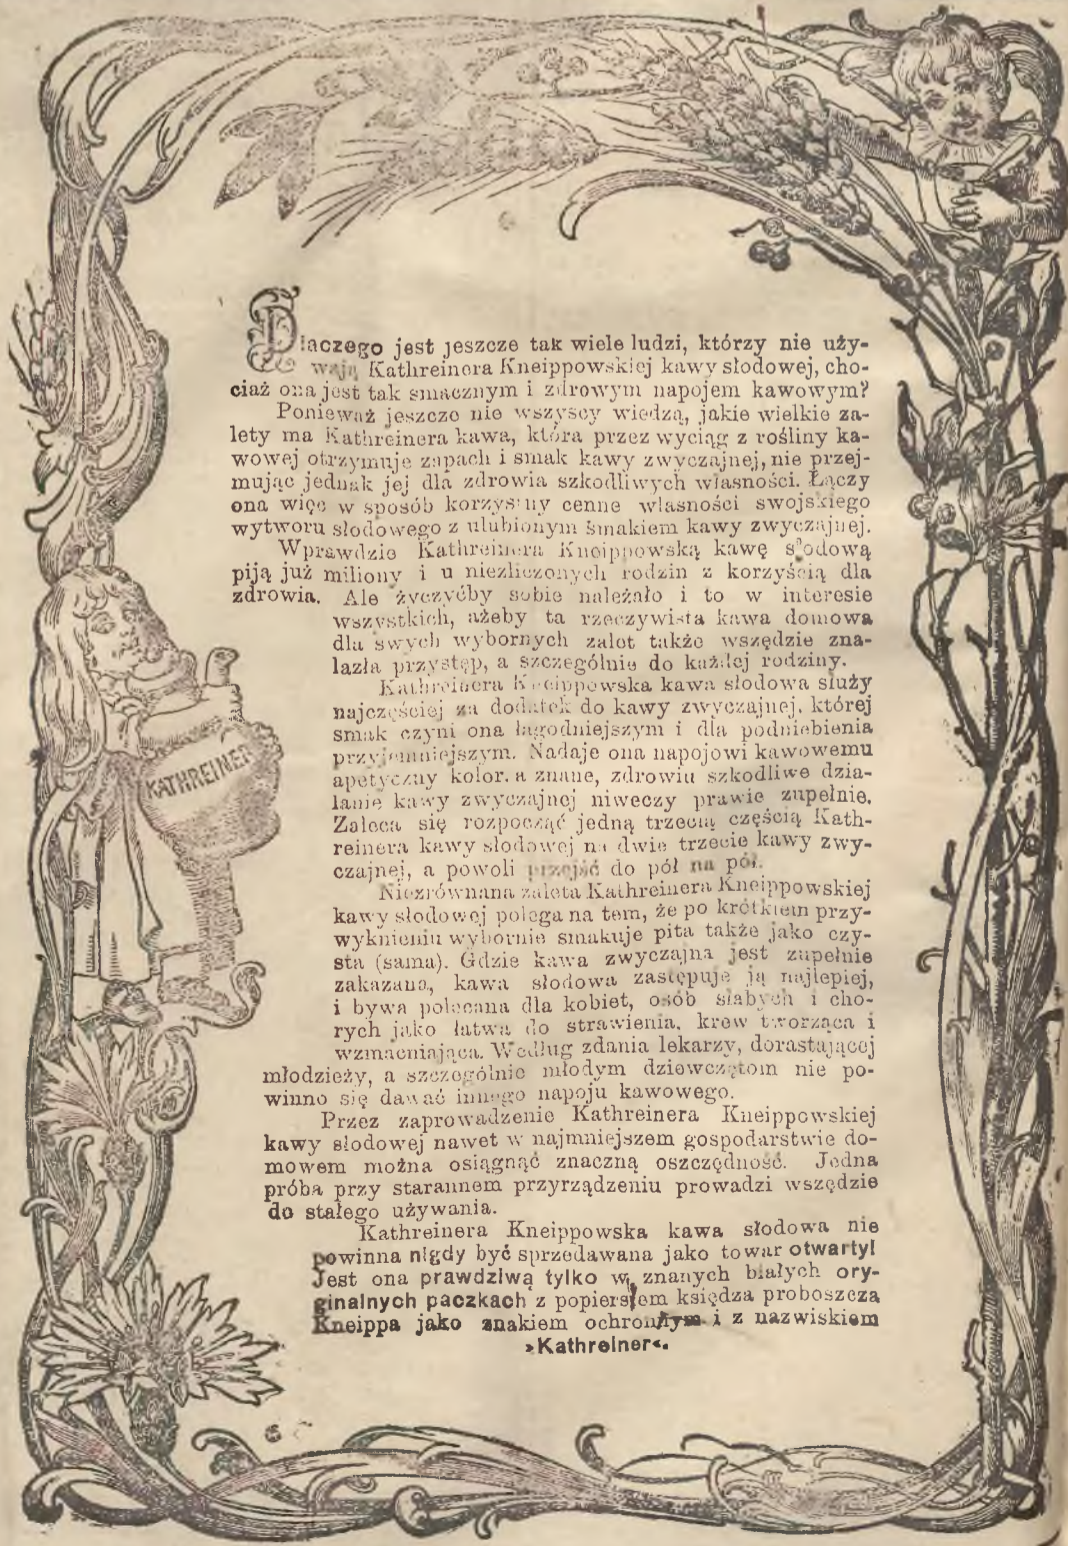 Dlaczego jest jeszcze tak wiele ludzi, którzy nie uży-
wają Kathreinera Kneippowskiej kawy słodowej, cho-
ciaż ona jest tak smacznym i zdrowym napojem kawowym?
Ponieważ jeszcze nie wszyscy wiedzą, jakie wielkie za-
lety ma Kathreinera kawa, która przez wyciąg z rośliny ka-
wowej otrzymuje zapach i smak kawy zwyczajnej, nie przej-
mując jednak jej dla zdrowia szkodliwych własności. Łączy
ona więc w sposób korzystny cenne własności swojskiego
wytworu słodowego z ulubionym smakiem kawy zwyczajnej.
Wprawdzie Kathreinera Kneippowską kawę słodową
piją już miliony i u niezliczonych rodzin z korzyścią dla
zdrowia. Ale życzyćby sobie należało i to w interesie
wszystkich, ażeby ta rzeczywista kawa domowa
dla swych wybornych zalet także wszędzie zna-
lazła przystęp, a szczególnie do każdej rodziny.
Kathreinera Kneippowska kawa słodowa służy
najczęściej za dodatek do kawy zwyczajnej, której
smak czyni ona łagodniejszym i dla podniebienia
przyjemniejszym. Nadaje ona napojowi kawowemu
apetyczny kolor, a znane, zdrowiu szkodliwe dzia-
łanie kawy zwyczajnej niweczy prawie zupełnie.
Zaleca się rozpocząć jedną trzecią częścią Kath-
reinera kawy słodowej na dwie trzecie kawy zwy-
czajnej, a powoli przejść do pół na pół.
Niezrównana zaleta Kathreinera Kneippowskiej
kawy słodowej polega na tem, że po krótkiem przy-
wyknieniu wybornie smakuje pita także jako czy-
sta (sama). Gdzie kawa zwyczajna jest zupełnie
zakazana, kawa słodowa zastępuje ją najlepiej,
i bywa polecana dla kobiet, osób słabych i cho-
rych jako łatwa do strawienia, krew tworząca i
wzmacniająca. Według zdania lekarzy, dorastającej
młodzieży, a szczególnie młodym dziewczętom nie po-
winno się dawać innego napoju kawowego.
Przez zaprowadzenie Kathreinera Kneippowskiej
kawy słodowej nawet w najmniejszem gospodarstwie do-
mowem można osiągnąć znaczną oszczędność. Jedna
próba przy starannem przyrządzeniu prowadzi wszędzie
do stałego używania.
Kathreinera Kneippowska kawa słodowa nie
powinna nigdy być sprzedawana jako towar otwarty!
Jest ona prawdziwą tylko w znanych białych ory-
ginalnych paczkach z popiersiem księdza proboszcza
Kneippa jako znakiem ochronnym i z nazwiskiem
»Kathreiner«.
KATHREINER